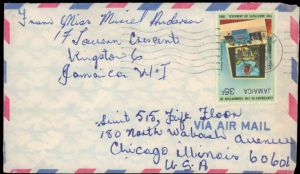 From Miss Muriel Anderson
17 Tavern Crescent
Kingston 6
Jamaica W.I
CENTENARY OF THE FOUNDATION OF
THE INSTITUTE OF JAMAICA
JAMAICA 35c
Suit 515, Fift Floor
VIA AIR MAIL
180 North Wabash Avenue
Chicago Illinois 60601
U.S.A